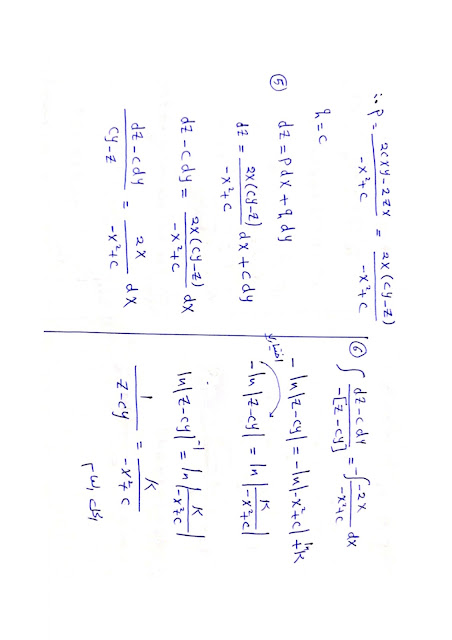 ∴ P = (2cxy - 2zx)/(-x²+c) = 2x(cy-z)/(-x²+c)
q = c
⑤ dz = P dx + q dy
dz = 2x(cy-z)/(-x²+c) dx + c dy
dz - c dy = 2x(cy-z)/(-x²+c) dx
(dz - c dy)/(cy-z) = 2x/(-x²+c) dx
⑥ ∫ (dz - c dy)/(-[z-cy]) = -∫ (-2x)/(-x²+c) dx
-ln|z-cy| = -ln|-x²+c| + lnk
-ln|z-cy| = ln|k/(-x²+c)|
ln|z-cy|⁻¹ = ln|k/(-x²+c)|
1/(z-cy) = k/(-x²+c)